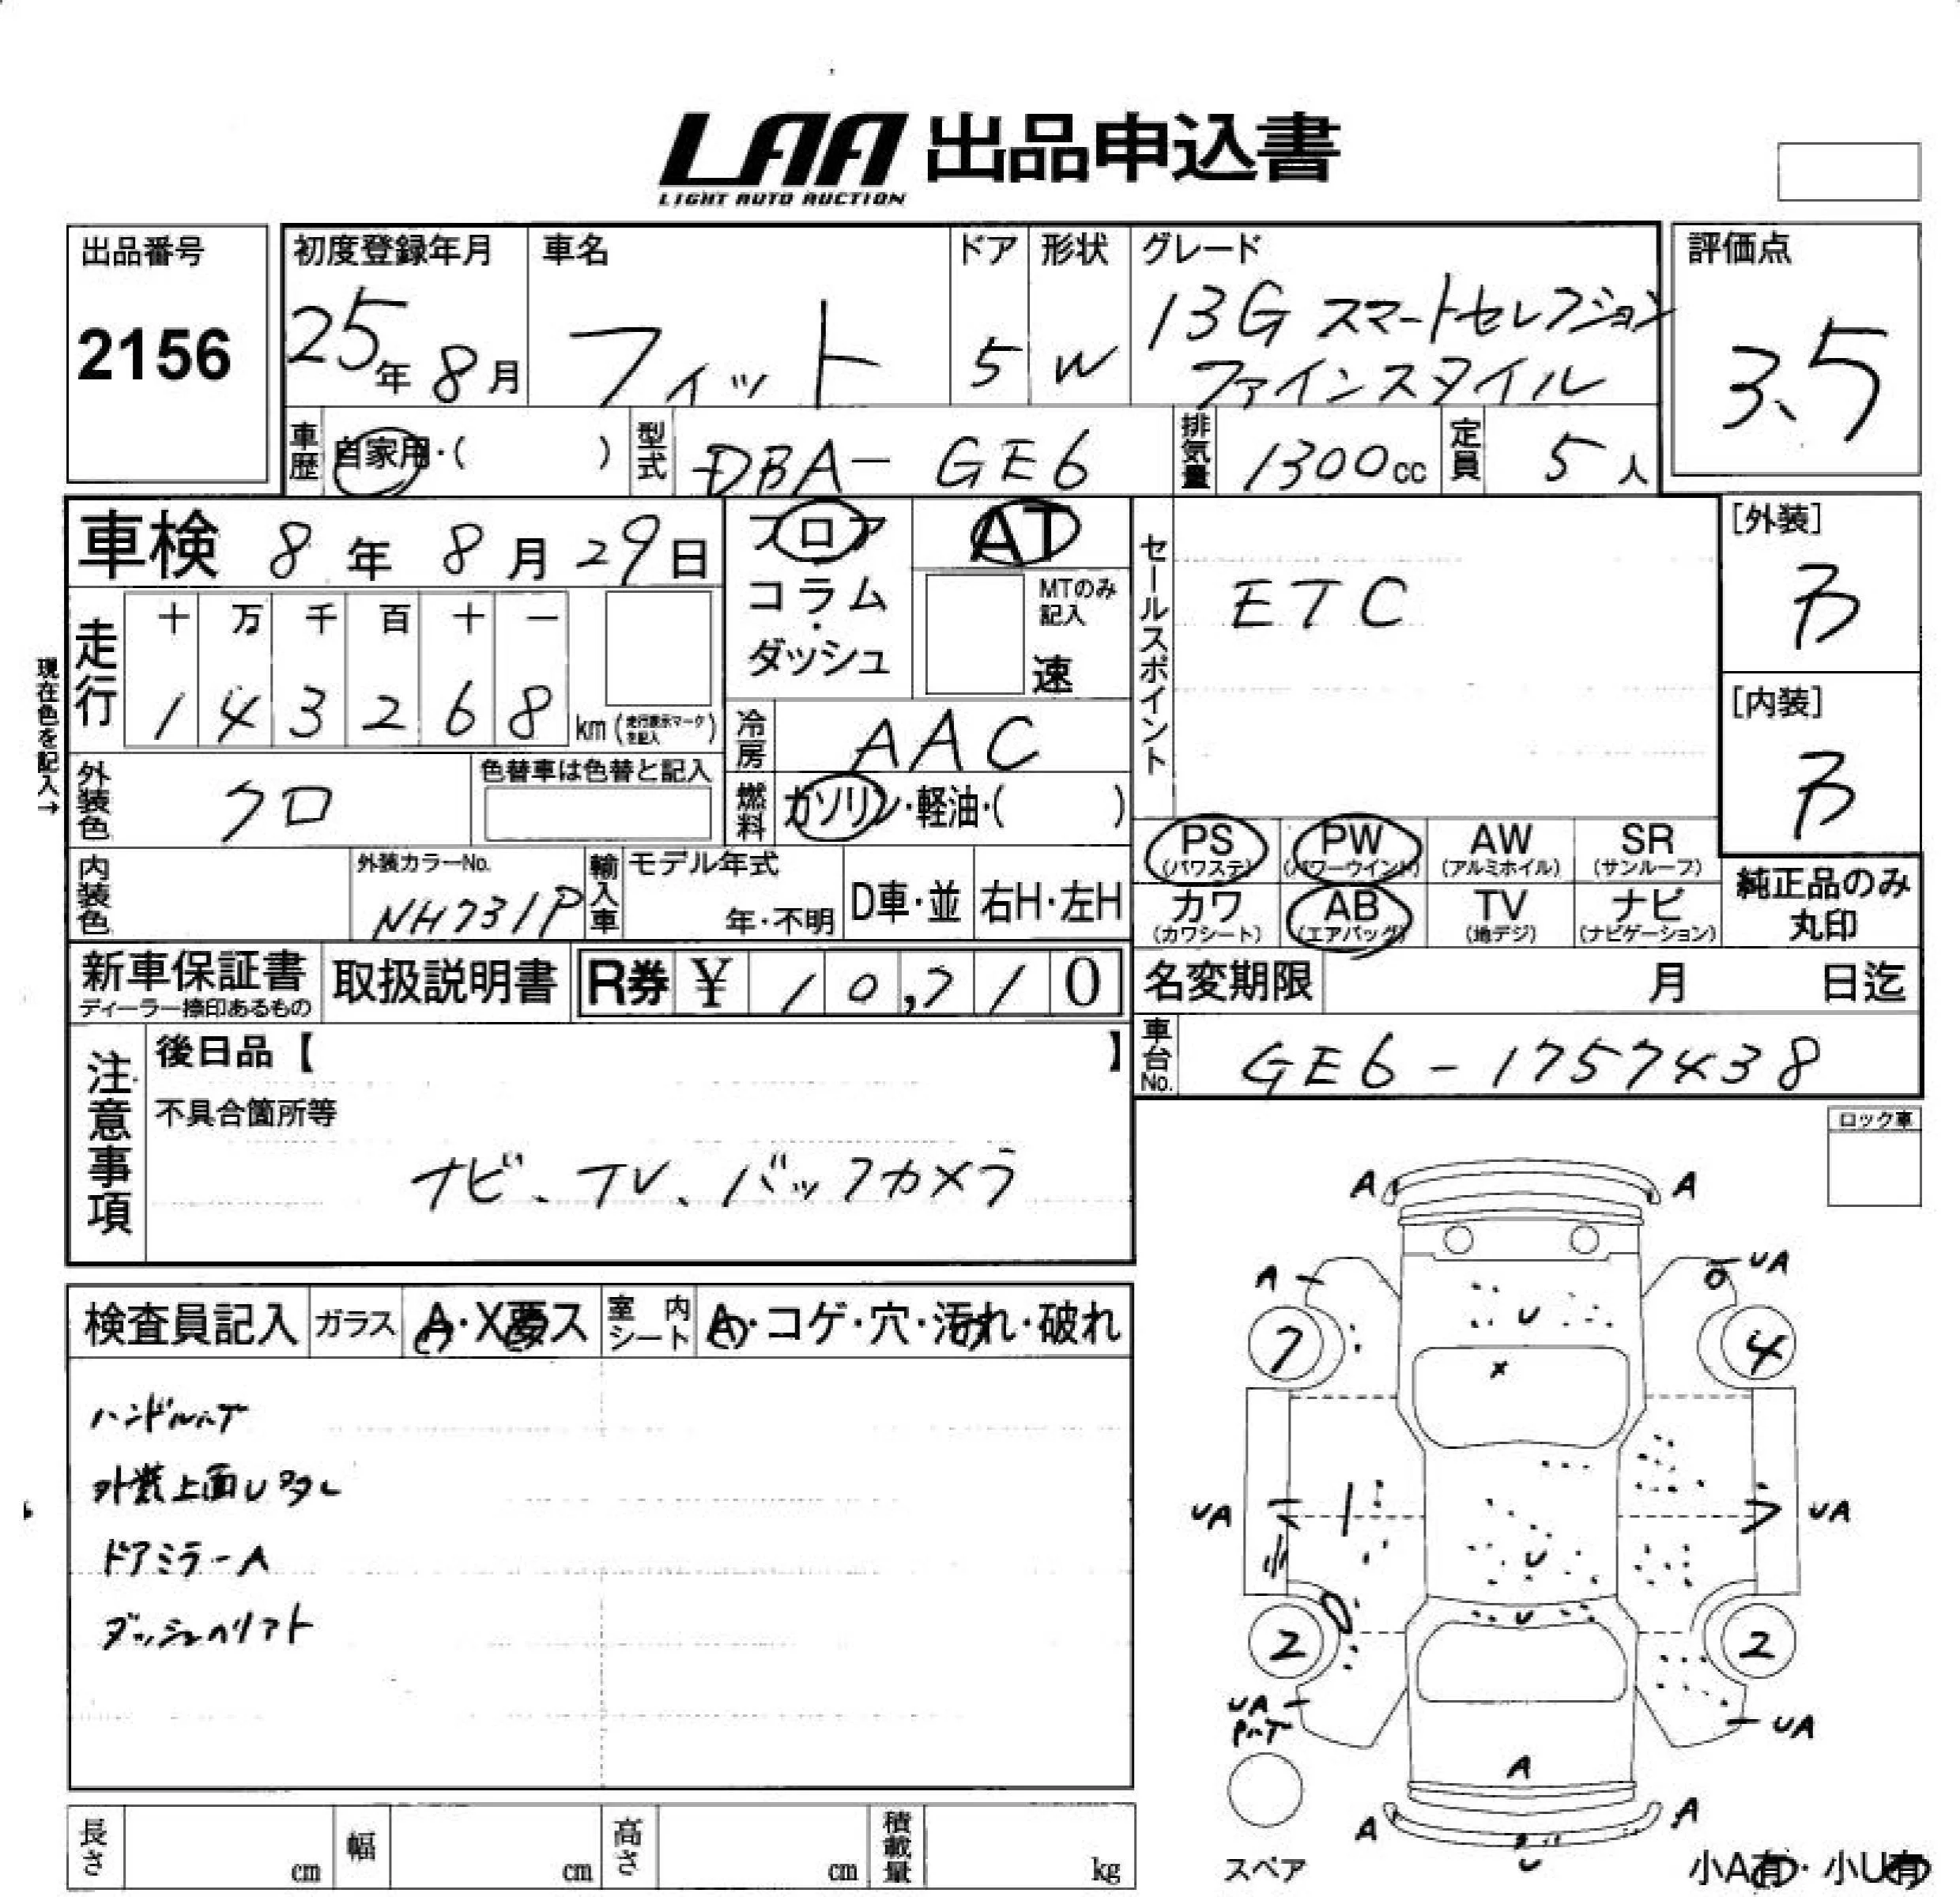 LAA 出品申込書
LIGHT AUTO AUCTION
出品番号
2156
初度登録年月
25年8月
車名
フィット
ドア
5
形状
W
グレード
13G スマートセレクション
ファインスタイル
評価点
3.5
車歴
自家用・( )
型式
DBA- GE6
排気量
1300cc
定員
5人
車検 8年8月29日
フロア
・
コラム
・
ダッシュ
AT
MTのみ
記入
速
セールスポイント
ETC
[外装]
[内装]
現在色を記入→
走行
十 万 千 百 十 一
1 4 3 2 6 8 km (走行表示マークを記入)
冷房
AAC
燃料
ガソリン・軽油・( )
外装色
クロ
色替車は色替と記入
内装色
外装カラーNo.
NH731P
輸入車
モデル年式
年・不明
D車・並
右H・左H
PS
(パワステ)
PW
(パワーウインド)
AW
(アルミホイル)
SR
(サンルーフ)
カワ
(カワシート)
AB
(エアバッグ)
TV
(地デジ)
ナビ
(ナビゲーション)
純正品のみ
丸印
新車保証書
ディーラー捺印あるもの
取扱説明書
R券 ¥ 10,710
名変期限 月 日迄
車台No.
GE6-1757438
注意事項
後日品【 】
不具合箇所等
ナビ、TV、バックカメラ
ロック車
検査員記入
ガラス
A・X要ス
室内
シート
A・コゲ・穴・汚れ・破れ
外装上面U多し
ドアミラーA
A A
A UA
U
7 4
X
UA UA
U
U
2 2
UA UA
A
A A
U
スペア
小A有・小U有
長さ cm
幅 cm
高さ cm
積載量 kg